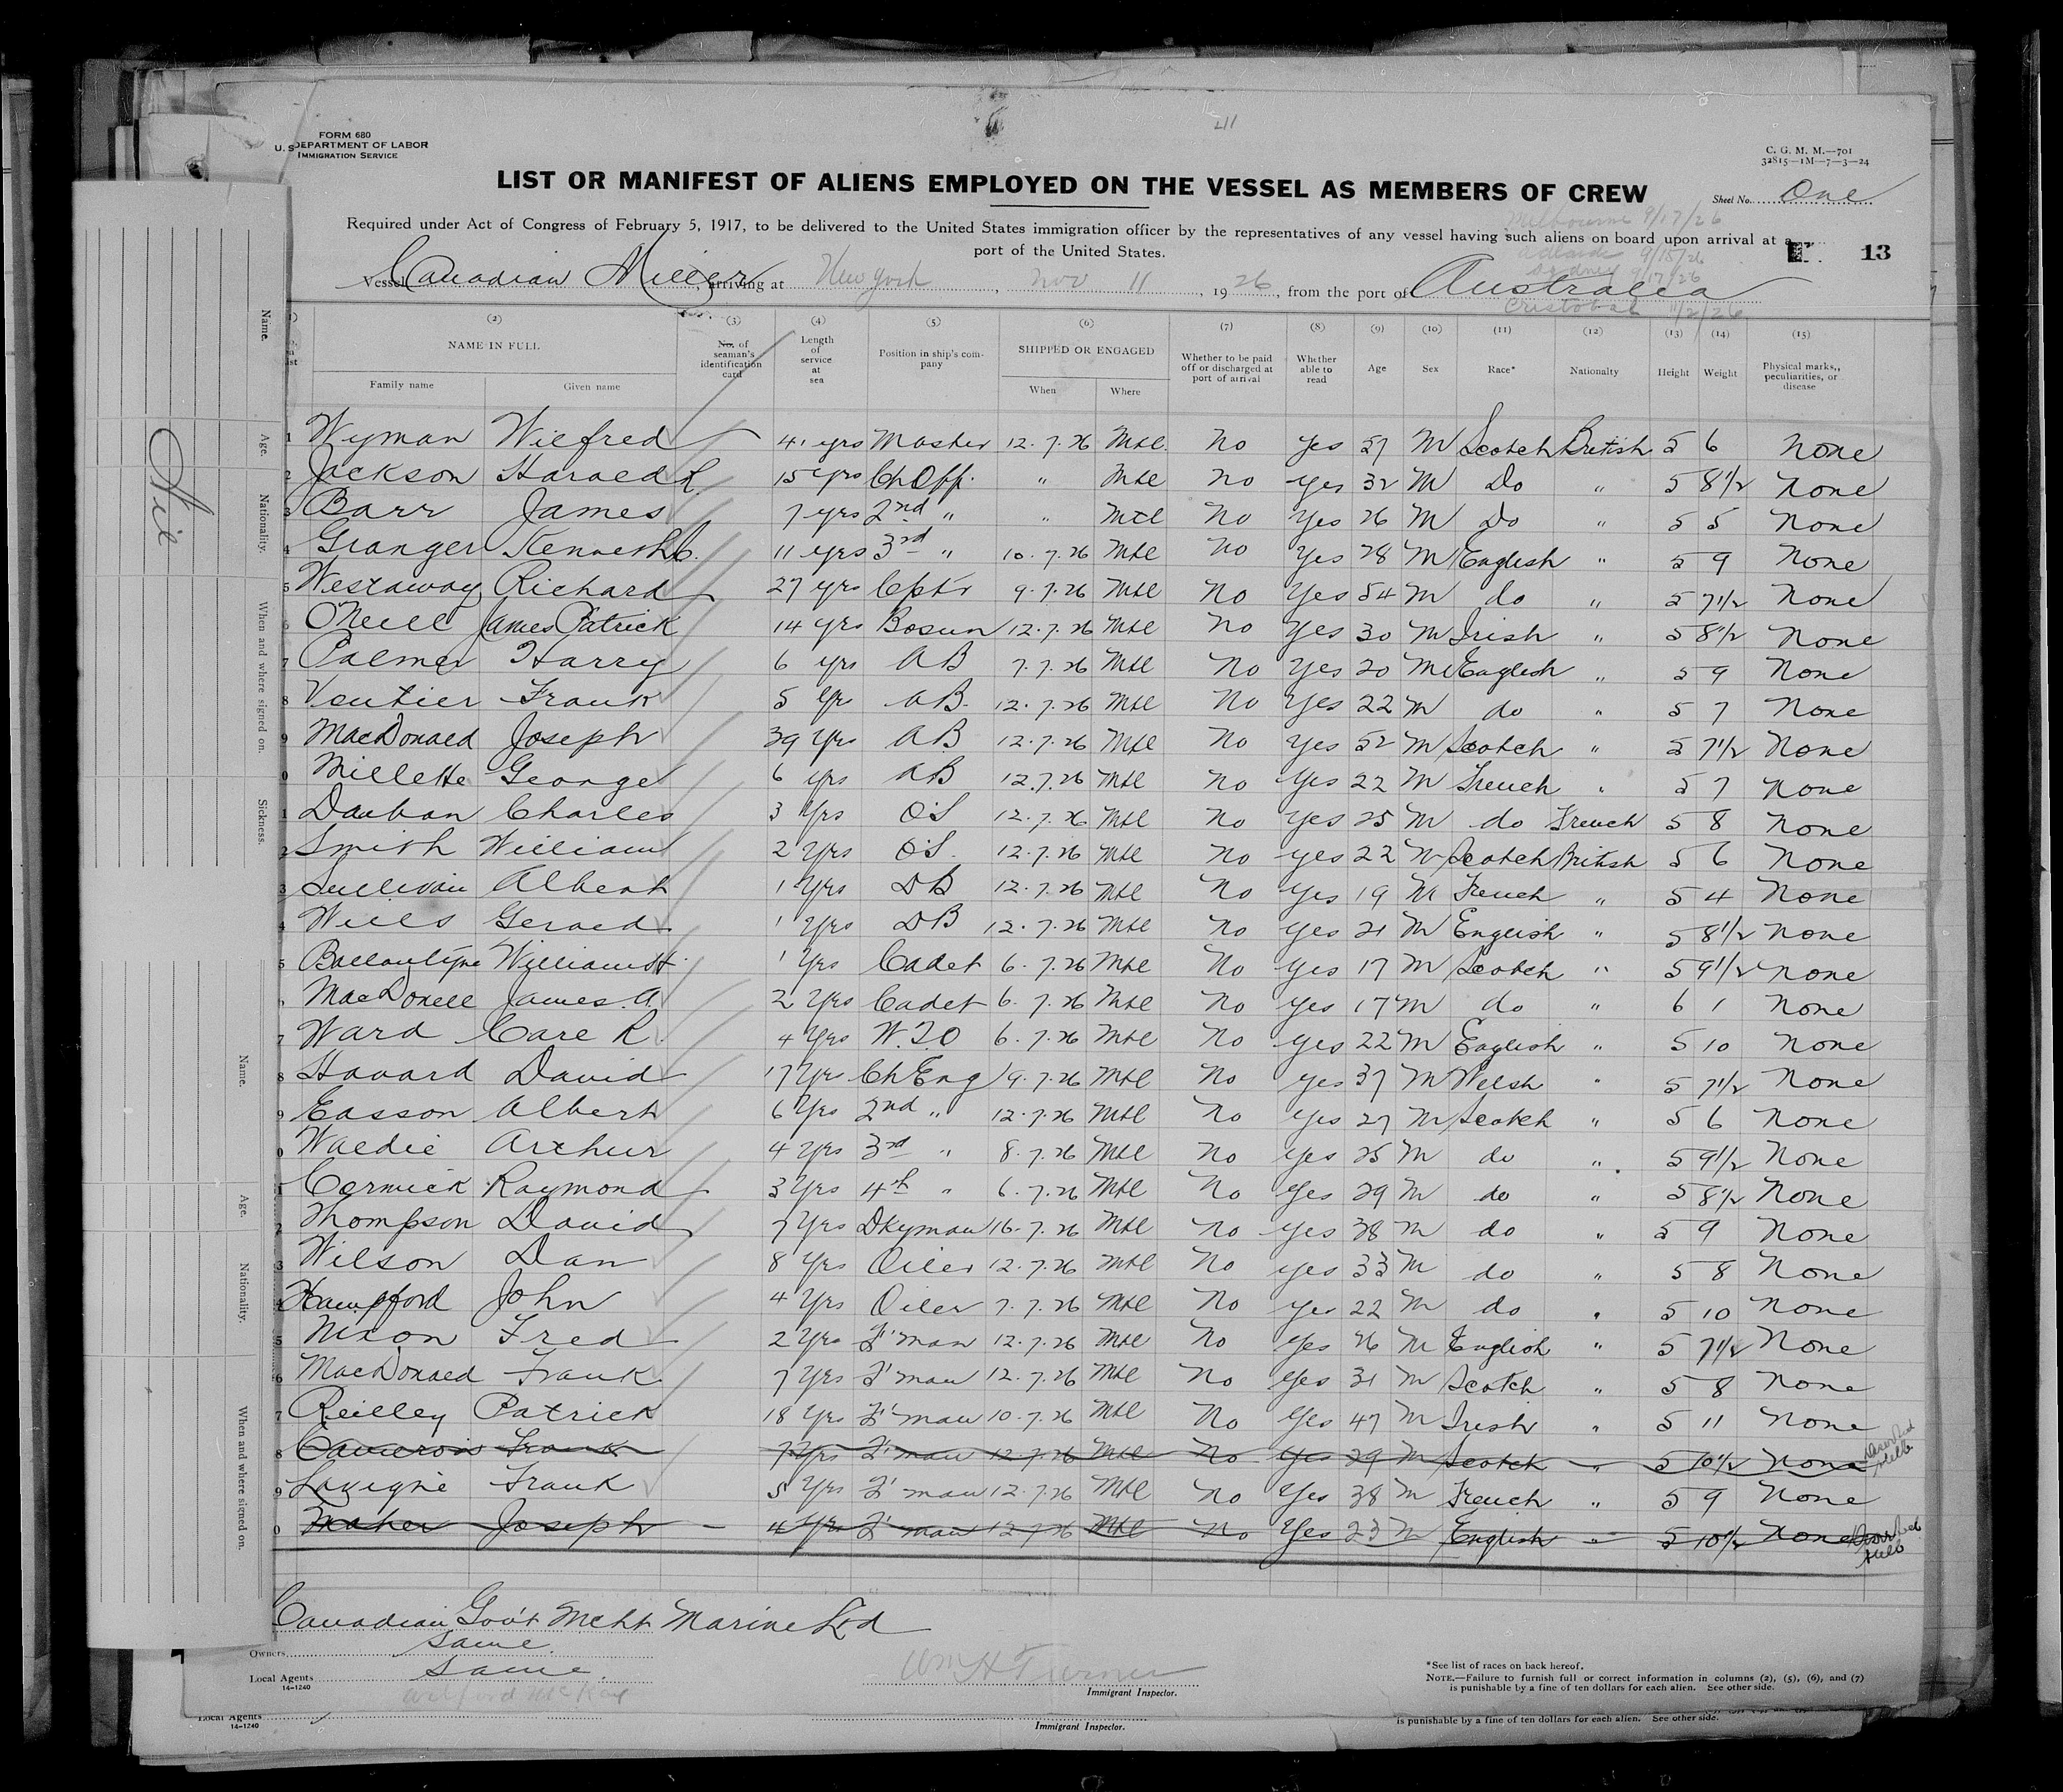 211
FORM 680
U. S. DEPARTMENT OF LABOR
IMMIGRATION SERVICE
C. G. M. M.—701
32815—1M—7—3—24
LIST OR MANIFEST OF ALIENS EMPLOYED ON THE VESSEL AS MEMBERS OF CREW
Sheet No. One
Required under Act of Congress of February 5, 1917, to be delivered to the United States immigration officer by the representatives of any vessel having such aliens on board upon arrival at a
port of the United States.
Melbourne 9/17/26
Adelaide 9/15/26
Sydney 9/17/26
Cristobal 11/2/26
13
Vessel Canadian Miller arriving at New York, Nov 11, 1926, from the port of Australia
(2) (3) (4) (5) (6) (7) (8) (9) (10) (11) (12) (13) (14) (15)
NAME IN FULL
Family name Given name
No. of seaman's identification card
Length of service at sea
Position in ship's company
SHIPPED OR ENGAGED
When Where
Whether to be paid off or discharged at port of arrival
Whether able to read
Age
Sex
Race*
Nationalty
Height
Weight
Physical marks,, peculiarities, or disease
1 Wyman Wilfred 41 yrs Master 12.7.26 Mtl. No Yes 57 M Scotch British 5 6 None
2 Jackson Harold R. 15 yrs Ch Off. " Mtl No Yes 32 M Do " 5 8 1/2 None
3 Barr James 7 yrs 2nd " " Mtl No Yes 26 M Do " 5 5 None
4 Granger Kenneth C. 11 yrs 3rd " 10.7.26 Mtl No Yes 28 M English " 5 9 None
5 Westaway Richard 27 yrs Cptr 9.7.26 Mtl No Yes 54 M do " 5 7 1/2 None
6 O'Neill James Patrick 14 yrs Bosun 12.7.26 Mtl No Yes 30 M Irish " 5 8 1/2 None
7 Palmer Harry 6 yrs AB 7.7.26 Mtl No Yes 20 M English " 5 9 None
8 Voutier Frank 5 yrs AB. 12.7.26 Mtl No Yes 22 M do " 5 7 None
9 MacDonald Joseph 39 Yrs AB 12.7.26 Mtl No Yes 52 M Scotch " 5 7 1/2 None
0 Millette George 6 yrs AB 12.7.26 Mtl No Yes 22 M French " 5 7 None
1 Dauban Charles 3 Yrs O'S 12.7.26 Mtl No Yes 25 M do French 5 8 None
2 Smith William 2 Yrs O'S. 12.7.26 Mtl No Yes 22 M Scotch British 5 6 None
3 Sullivan Albert 1 Yrs DB 12.7.26 Mtl No Yes 19 M French " 5 4 None
4 Wills Gerald 1 Yrs DB 12.7.26 Mtl No Yes 21 M English " 5 8 1/2 None
5 Ballantyne William H. 1 Yrs Cadet 6.7.26 Mtl No Yes 17 M Scotch " 5 9 1/2 None
MacDonell James. A. 2 Yrs Cadet 6.7.26 Mtl No Yes 17 M do " 6 1 None
7 Ward Carl R. 4 Yrs W.T.O 6.7.26 Mtl No Yes 22 M English " 5 10 None
8 Havard David 17 Yrs Ch Eng 9.7.26 Mtl No Yes 37 M Welsh " 5 7 1/2 None
9 Easson Albert 6 Yrs 2nd " 12.7.26 Mtl No Yes 27 M Scotch " 5 6 None
0 Waldie Arthur 4 Yrs 3rd " 8.7.26 Mtl No Yes 25 M do " 5 9 1/2 None
1 Cormick Raymond 3 Yrs 4th " 6.7.26 Mtl No Yes 29 M do " 5 8 1/2 None
2 Thompson David 7 Yrs Dkyman 16.7.26 Mtl No Yes 28 M do " 5 9 None
3 Wilson Dan 8 Yrs Oiler 12.7.26 Mtl No Yes 33 M do " 5 8 None
John 4 Yrs Oiler 7.7.26 Mtl No Yes 22 M do " 5 10 None
5 Nixon Fred 2 Yrs F'man 12.7.26 Mtl No Yes 26 M English " 5 7 1/2 None
6 MacDonald Frank 7 Yrs F'man 12.7.26 Mtl No Yes 31 M Scotch " 5 8 None
7 Reilley Patrick 18 Yrs F'man 10.7.26 Mtl No Yes 47 M Irish " 5 11 None
8 Cameron Frank 7 Yrs F'man 12.7.26 Mtl No Yes 29 M Scotch " 5 10 1/2 None Deserted Melb
9 Lavigne Frank 5 Yrs F'man 12.7.26 Mtl No Yes 38 M French " 5 9 None
0 Maher Joseph 4 Yrs F'man 12.7.26 Mtl No Yes 23 M English " 5 10 1/2 None Deserted Melb
Canadian Gov't Mcht Marine Ltd
Owners same
Local Agents same.
14—1240
Wm H Turner
Immigrant Inspector.
*See list of races on back hereof.
NOTE.—Failure to furnish full or correct information in columns (2), (5), (6), and (7)
is punishable by a fine of ten dollars for each alien. See other side.
Local Agents
14—1240
Immigrant Inspector.
is punishable by a fine of ten dollars for each alien. See other side.
Name.
Age.
Nationality.
When and where signed on.
Sickness.
Nil
Name.
Age.
Nationality.
When and where signed on.